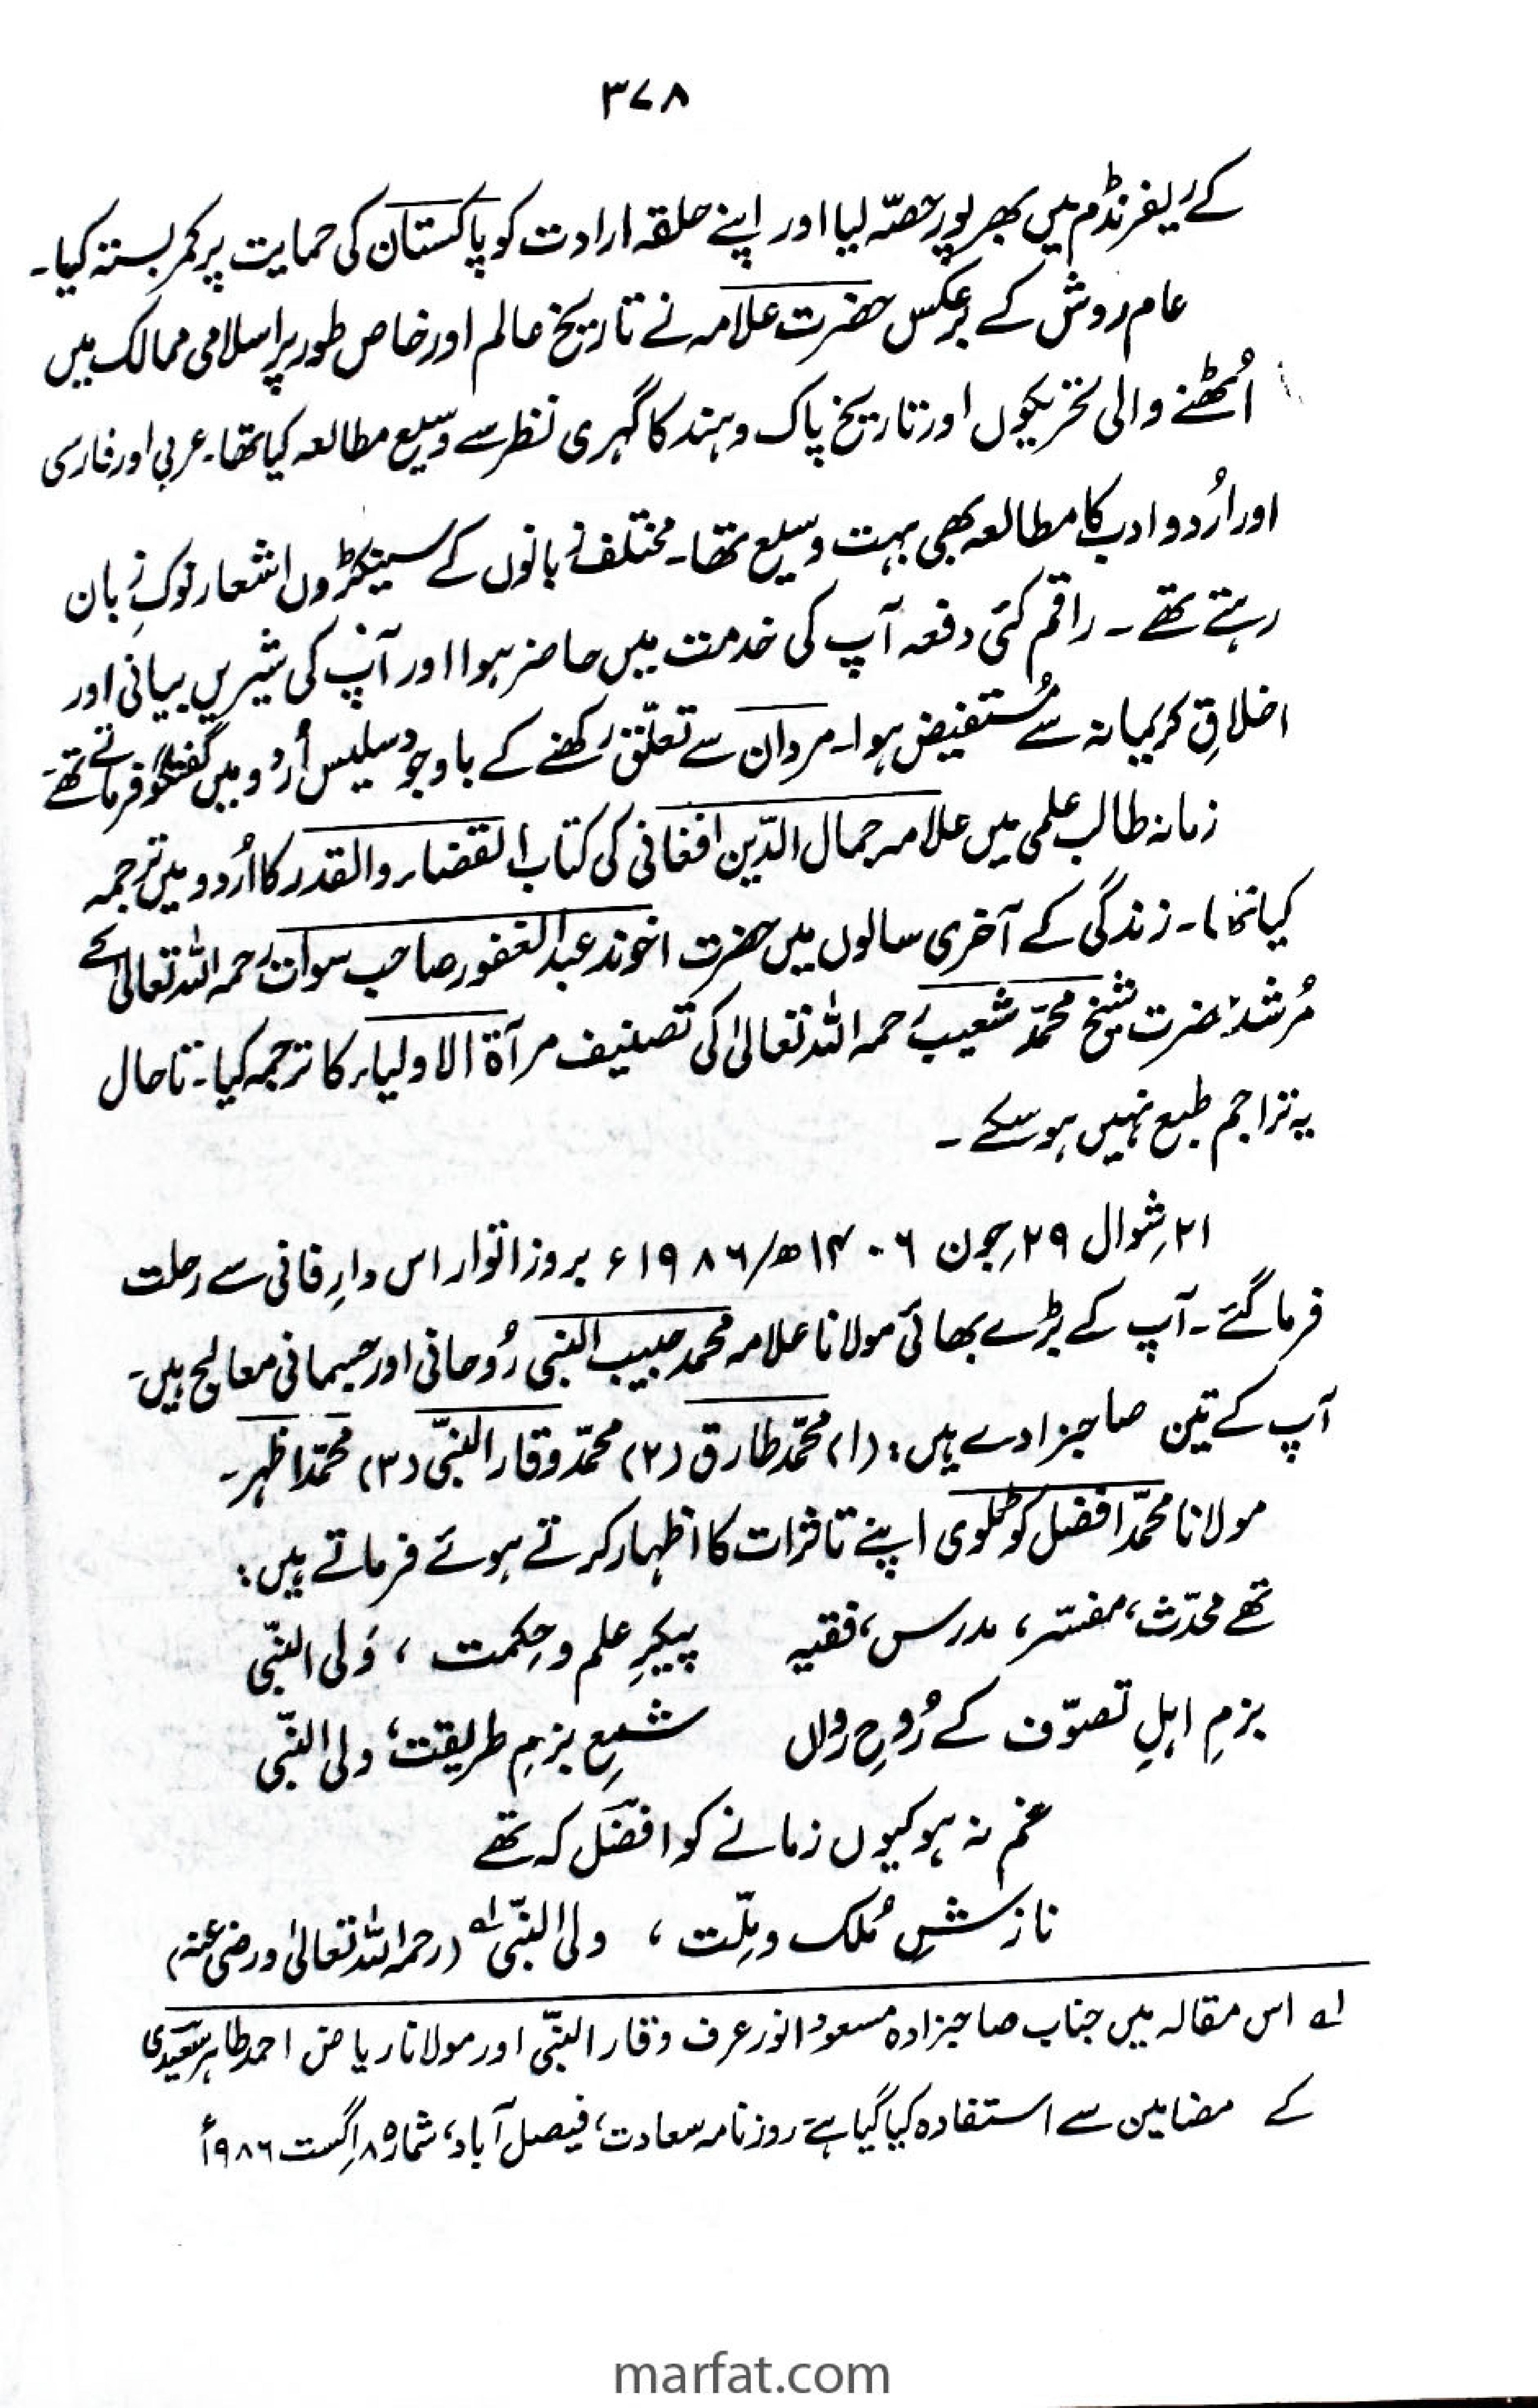 ۳۷۸
کے ریفرنڈم میں بھرپور حصّہ لیا اور اپنے حلقہ ارادت کو پاکستان کی حمایت پر کمربستہ کیا۔
عام روش کے برعکس حضرت علامہ نے تاریخ عالم اور خاص طور پر اسلامی ممالک میں
اُٹھنے والی تحریکوں اور تاریخ پاک و ہند کا گہری نظر سے وسیع مطالعہ کیا تھا۔ عربی اور فارسی
اور اُردو ادب کا مطالعہ بھی بہت وسیع تھا۔ مختلف زبانوں کے سینکڑوں اشعار نوکِ زبان
رہتے تھے۔ راقم کئی دفعہ آپ کی خدمت میں حاضر ہوا اور آپ کی شیریں بیانی اور
اخلاقِ کریمانہ سے مُستفیض ہوا۔ مردان سے تعلّق رکھنے کے باوجود سلیس اُردو میں گفتگو فرماتے تھے۔
زمانہ طالب علمی میں علامہ جمال الدّین افغانی کی کتاب القضاء والقدر کا اُردو میں ترجمہ
کیا تھا۔ زندگی کے آخری سالوں میں حضرت اخوند عبدالغفور صاحب سوات رحمہ اللہ تعالیٰ کے
مُرشد حضرت شیخ محمّد شعیب رحمہ اللہ تعالیٰ کی تصنیف مرآۃ الاولیاء کا ترجمہ کیا۔ تاحال
یہ تراجم طبع نہیں ہو سکے ۔
۲۱ شوال ۲۹ جون ۱۴۰۶ھ/۱۹۸۶ء بروز اتوار اس دارِ فانی سے رحلت
فرما گئے۔ آپ کے بڑے بھائی مولانا علامہ محمد حبیب النبی رُوحانی اور جسمانی معالج ہیں۔
آپ کے تین صاحبزادے ہیں: (۱) محمّد طارق (۲) محمّد وقار النبّی (۳) محمّد اظہر۔
مولانا محمّد افضل کوٹلوی اپنے تاثرات کا اظہار کرتے ہوئے فرماتے ہیں:
تھے محدّث، مفسّر، مدرس، فقیہ پیکرِ علم و حِکمت ، وَلی النبّی
بزمِ اہلِ تصوّف کے رُوحِ رواں شمعِ بزمِ طریقت، ولی النبّی
غم نہ ہو کیوں زمانے کو افضؔل کہ تھے
نازشِ مُلک و مِلّت ، ولی النبّی لہ (رحمہ اللہ تعالیٰ و رضی عنہ)
لہ اس مقالہ میں جناب صاحبزادہ مسعود انور عرف وقار النبّی اور مولانا ریاض احمد طاہر سعیدی
کے مضامین سے استفادہ کیا گیا ہے، روزنامہ سعادت، فیصل آباد، شمارہ ۸ اگست ۱۹۸۶ء
marfat.com